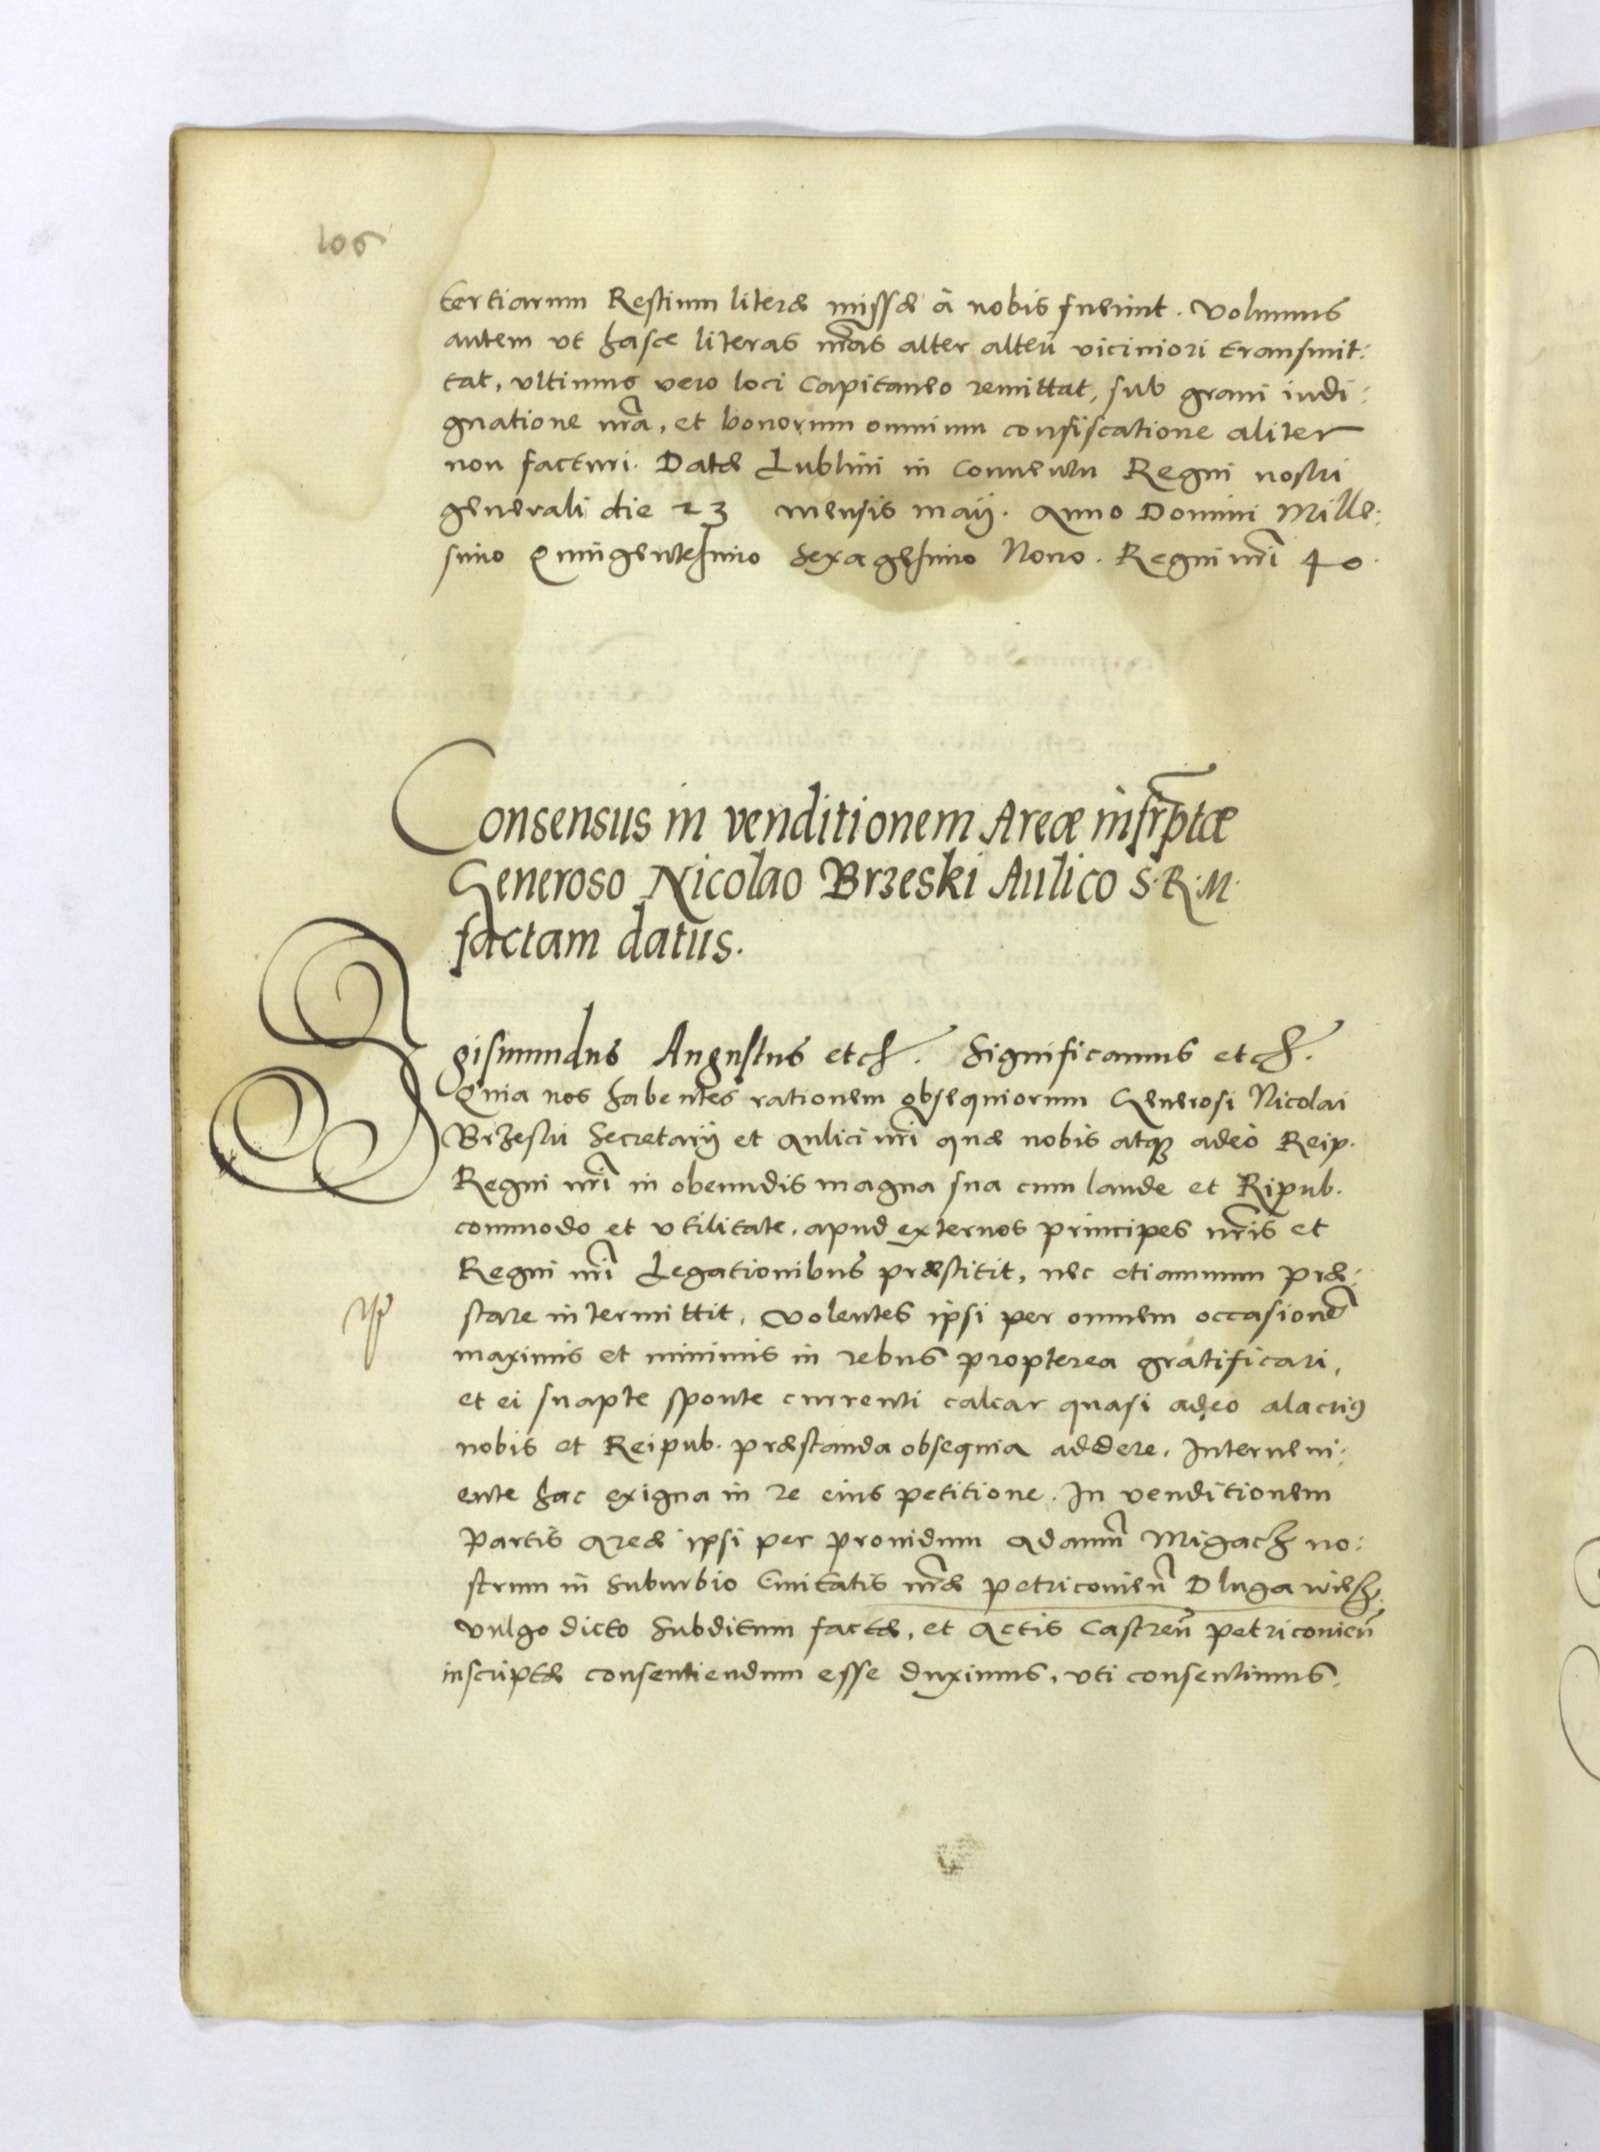 106
tertiarum Restium literæ missæ à nobis fuerint. Volumus
autem vt hasce literas nr̃as alter alteri viciniori transmit:
tat, vltimus vero loci Capitaneo remittat, sub graui indi:
gnatione nr̃a, et bonorum omnium confiscatione aliter
non facturi. Datæ Lublini in Conuentu Regni nostri
generali die 23 mensis maij. Anno Domini Mille:
simo Quingentesimo Sexagesimo Nono. Regni nr̃i 40.
Consensus in venditionem Areæ infrãptæ
Generoso Nicolao Brzeski Aulico S. R. M.
factam datus.
Sigismundus Augustus etc. Significamus etc.
Quia nos habentes rationem obsequiorum Generosi Nicolai
Brzeski Secretarij et Aulici nr̃i quæ nobis atq₃ adeò Reip.
Regni nr̃i in obeundis magna sua cum laude et Ripub.
commodo et vtilitate, apud externos principes nr̃is et
Regni nr̃i Legationibus præstitit, nec etiamnum præ:
stare intermittit, Volentes ipsi per omnem occasionẽ
maximis et minimis in rebus propterea gratificari,
et ei suapte sponte currenti calcar quasi adeo alacrius
nobis et Reipub. præstanda obsequia addere. Interueni:
ente hac exigua in re eius petitione. In venditionem
Partis Areæ ipsi per prouidum Adamũ Migacz no:
strum in Suburbio Ciuitatis nr̃æ Petriconieñ Dluga wies
vulgo dicto Subditum factæ, et Actis Castreñ Petriconieñ
inscriptæ consentiendum esse duximus, vti consentimus